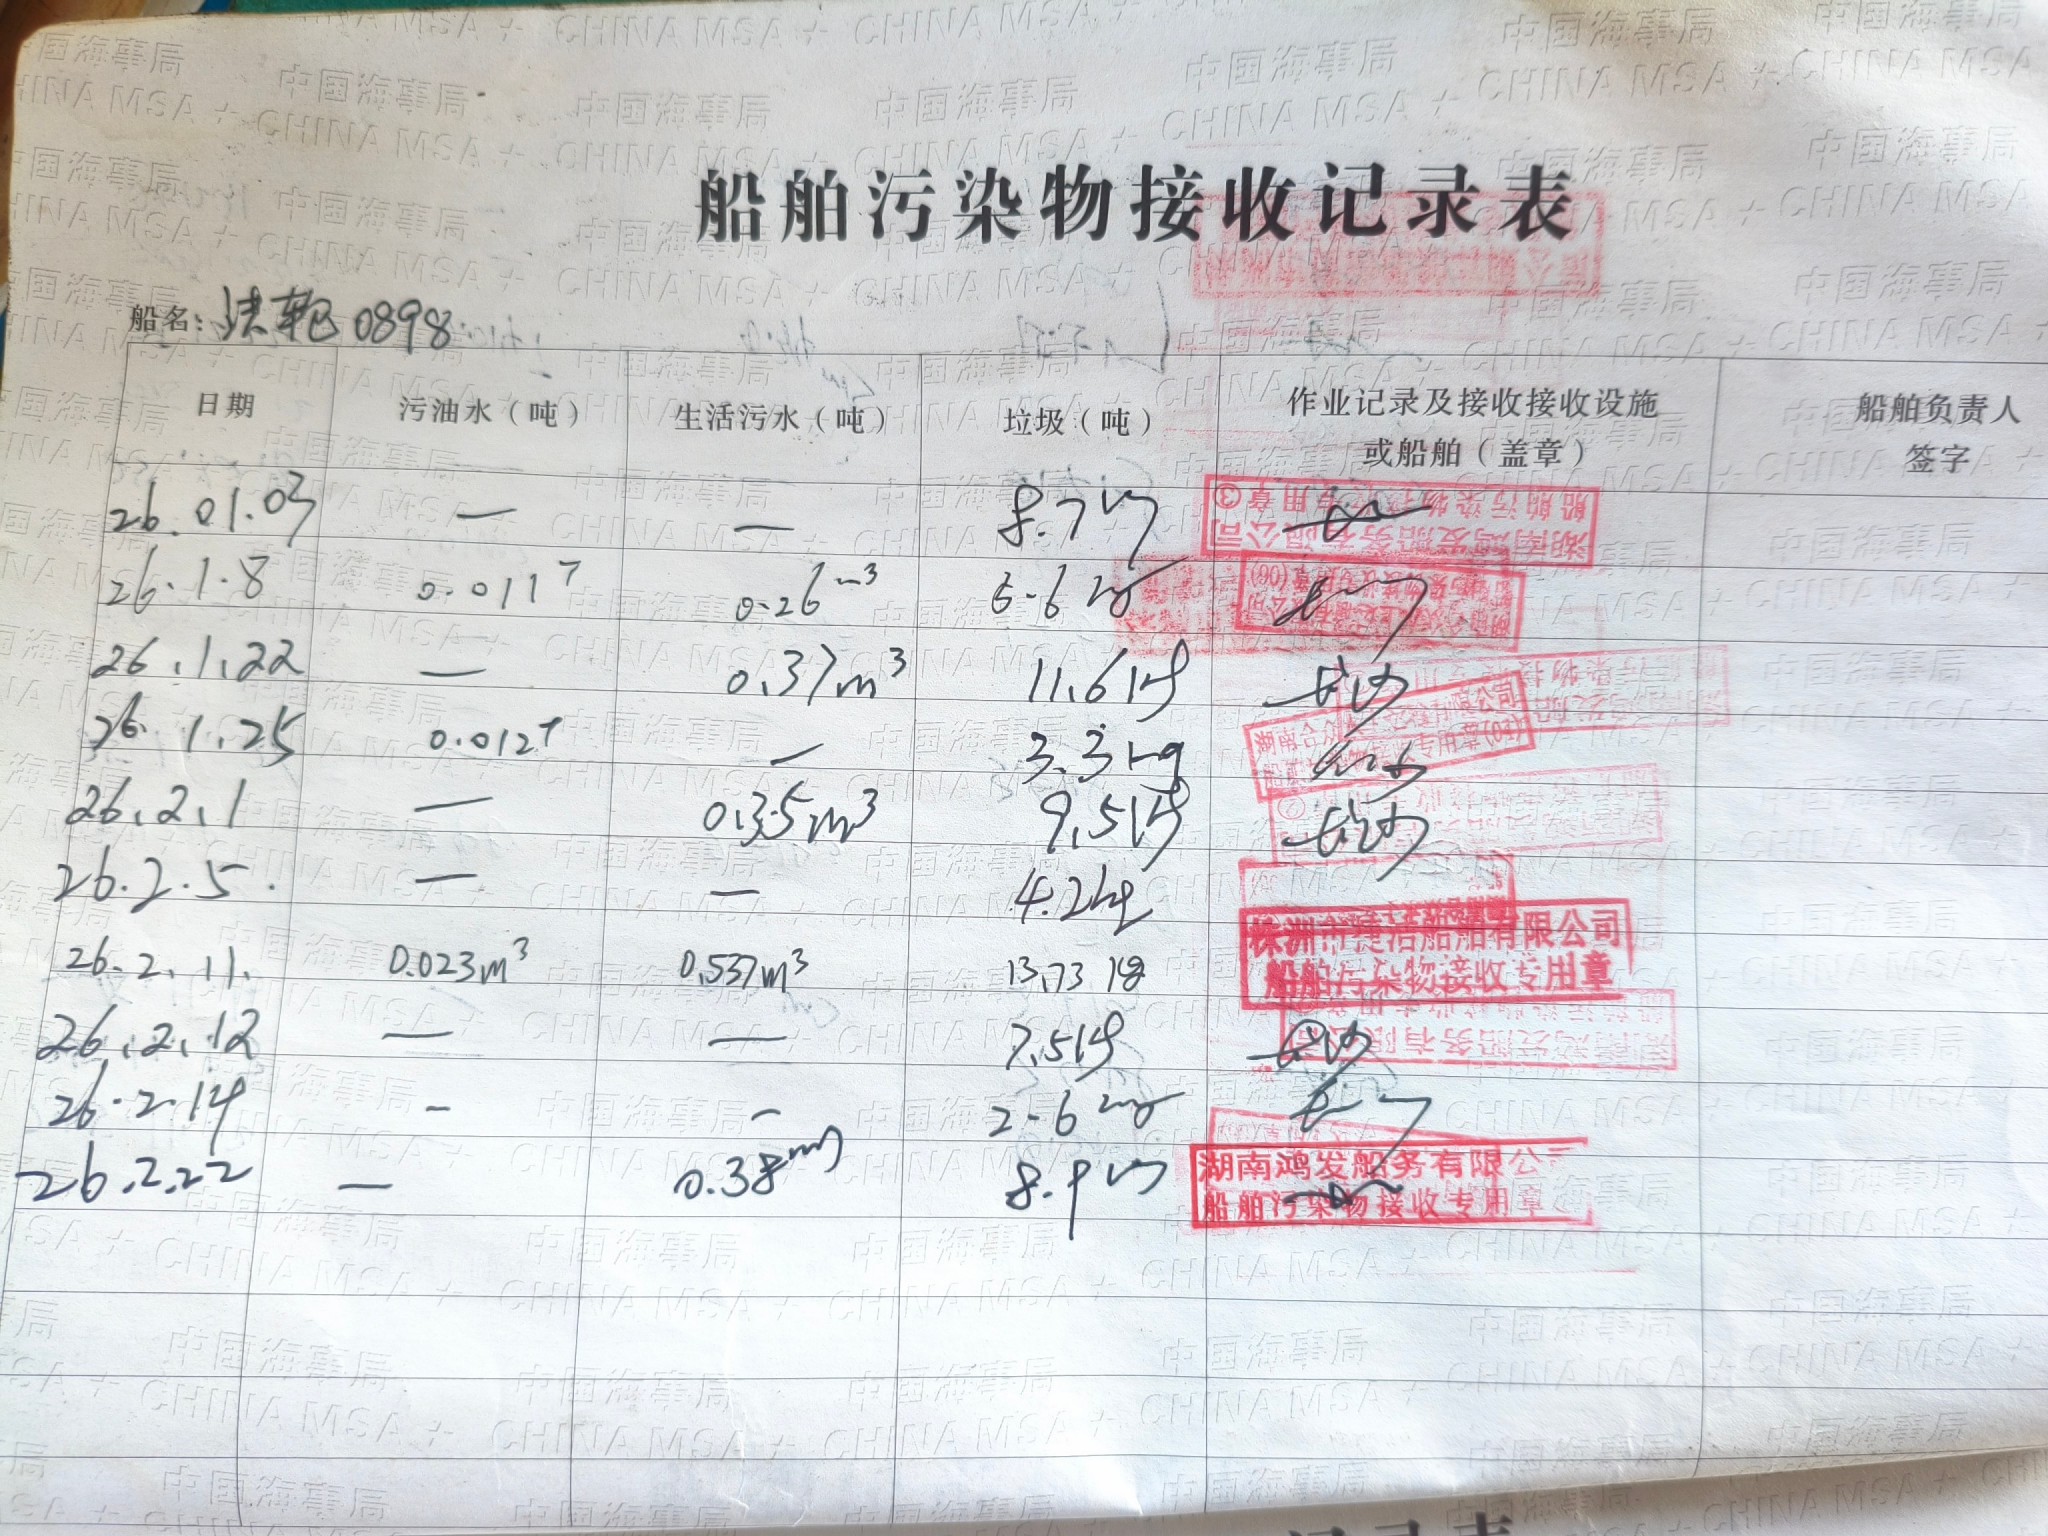 船舶污染物接收记录表
船名: 0898
日期 污油水（吨） 生活污水（吨） 垃圾（吨） 作业记录及接收接收设施 或船舶（盖章） 船舶负责人 签字
26.01.03 — — 8.7
船舶污染物接收专用章③
湖南鸿发船务有限公司
26.1.8 0.011T 0.26m³ 6.6kg
26.1.22 — 0.37m³ 11.6kg 长沙
26.1.25 0.012T — 3.3kg
26.2.1 — 0.35m³ 9.5kg 长沙
26.2.5. — — 4.2kg
26.2.11. 0.023m³ 0.537m³ 13.73kg
株洲市捷洁船舶有限公司
船舶污染物接收专用章
26.2.12 — — 7.5kg 长沙
湖南鸿发船务有限公司
26.2.14 - - 2.6kg
26.2.22 — 0.38m³ 8.9
湖南鸿发船务有限公
船舶污染物接收专用章
中国海事局
CHINA MSA +
记录表